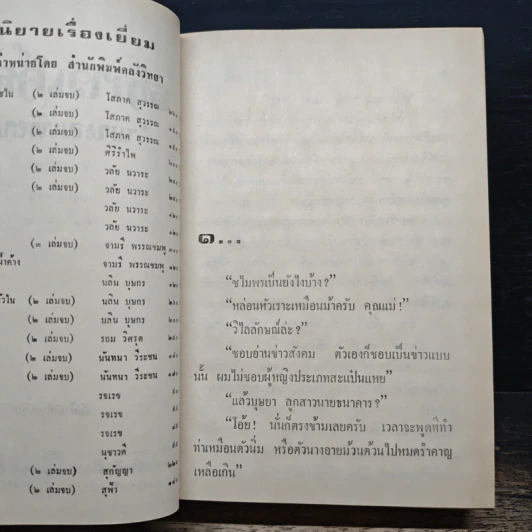 นิยายเรื่องเยี่ยม
จำหน่ายโดย สำนักพิมพ์คลังวิทยา
(๒ เล่มจบ) โสภาค สุวรรณ
(๒ เล่มจบ) โสภาค สุวรรณ
(๒ เล่มจบ) โสภาค สุวรรณ
(๒ เล่มจบ) ศิริรำไพ
(๒ เล่มจบ) วลัย นวาระ
(๒ เล่มจบ) วลัย นวาระ
วลัย นวาระ
วลัย นวาระ
(๓ เล่มจบ) จามรี พรรณชมพู
น้ำค้าง จามรี พรรณชมพู
นลิน บุษกร
(๒ เล่มจบ) นลิน บุษกร
(๒ เล่มจบ) นลิน บุษกร
(๒ เล่มจบ) รอม วิศรุต
(๒ เล่มจบ) นันทนา วีระชน
(๒ เล่มจบ) นันทนา วีระชน
รจเรข
รจเรข
รจเรข
นุชาวดี
(๒ เล่มจบ) สุกัญญา
(๒ เล่มจบ) สุฟ้า
๑...
“ชไมพรเป็นยังไงบ้าง?”
“หล่อนหัวเราะเหมือนม้าครับ คุณแม่!”
“วิไลลักษณ์ล่ะ?”
“ชอบอ่านข่าวสังคม ตัวเองก็ชอบเป็นข่าวแบบ
นั้น ผมไม่ชอบผู้หญิงประเภทสะแป้นแหย”
“แล้วบุษยา ลูกสาวนายธนาคาร?”
“โอ้ย! นั่นก็ตรงข้ามเลยครับ เวลาจะพูดทีทำ
ท่าเหมือนตัวนิ่ม หรือตัวนางอายม้วนต้วนไปหมดรำคาญ
เหลือเกิน”